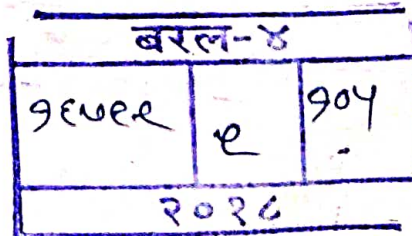 बरल-४
१६७९९ ९ १०५
२०१८